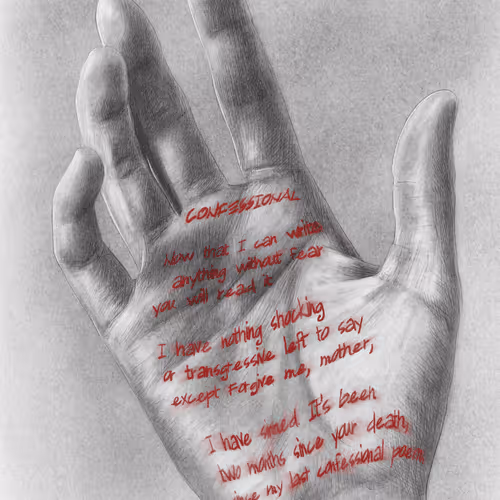 CONFESSIONAL
Now that I can write
anything without fear
you will read it
I have nothing shocking
or transgressive left to say
except Forgive me, mother,
I have sinned It's been
two months since your death,
since my last confessional poem,